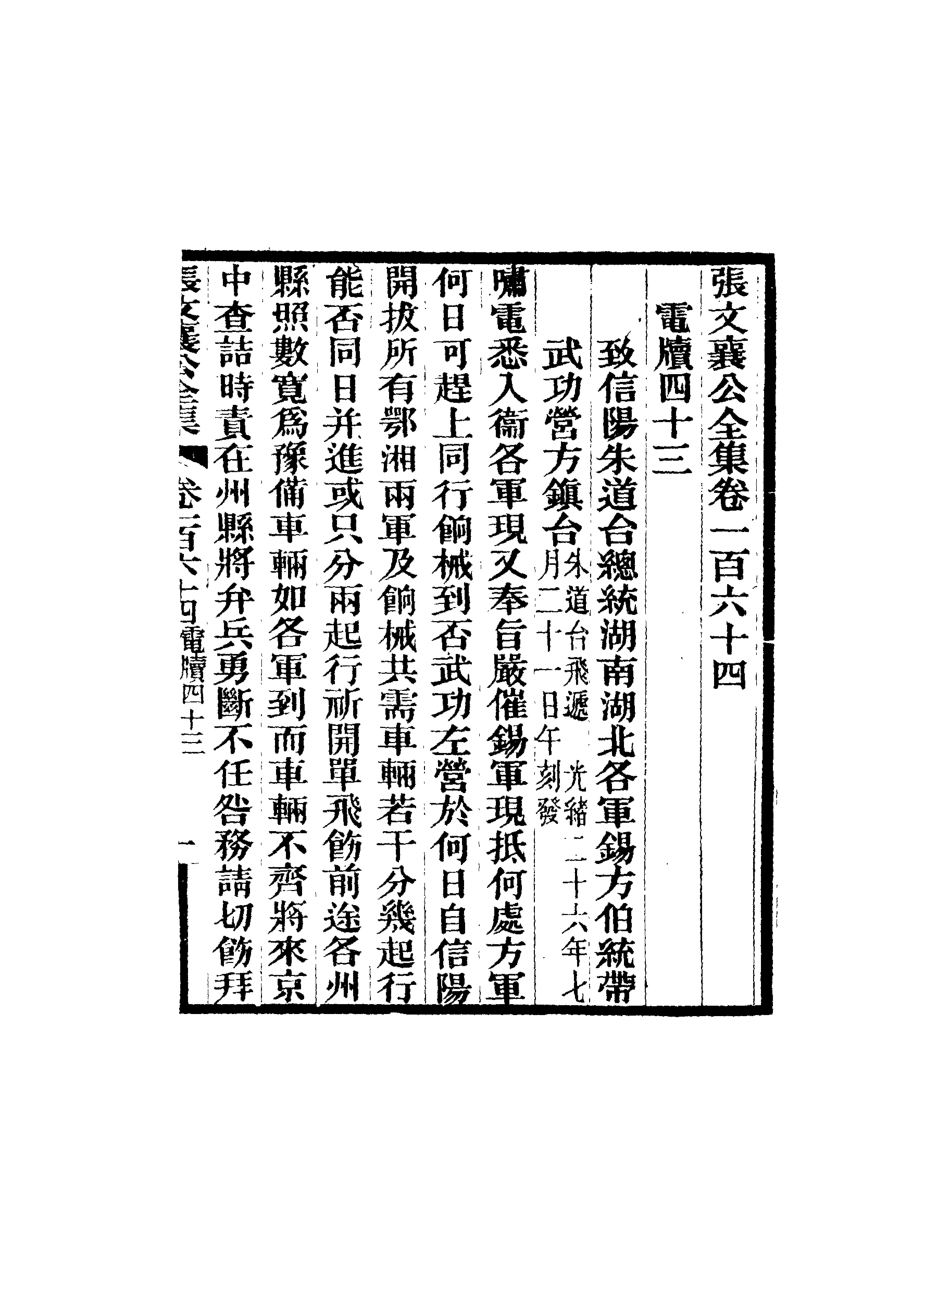 張文襄公全集卷一百六十四
電牘四十三
致信陽朱道台總統湖南湖北各軍錫方伯統帶
武功營方鎮台朱道台飛遞 光緒二十六年七
月二十一日午刻發
嘯電悉入衞各軍現又奉旨嚴催錫軍現抵何處方軍
何日可趕上同行餉械到否武功左營於何日自信陽
開拔所有鄂湘兩軍及餉械共需車輛若干分幾起行
能否同日并進或只分兩起行祈開單飛飭前途各州
縣照數寬爲豫備車輛如各軍到而車輛不齊將來京
中查詰時責在州縣將弁兵勇斷不任咎務請切飭拜
張文襄公全集 卷一百六十四 電牘四十三 一